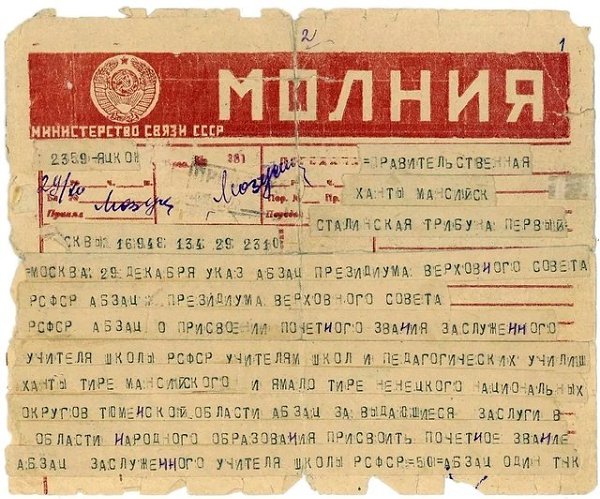 2
1
МОЛНИЯ
МИНИСТЕРСТВО СВЯЗИ СССР
2359 ЯЦКОИ 381 =ПРАВИТЕЛЬСТВЕННАЯ
29/XII ХАНТЫ МАНСИЙСК
СТАЛИНСКАЯ ТРИБУНА ПЕРВЫЙ=
СКВЫ 16948 134 29 2310=
=МОСКВА 29 ДЕКАБРЯ УКАЗ АБЗАЦ ПРЕЗИДИУМА ВЕРХОВНОГО СОВЕТА
РСФСР АБЗАЦ ПРЕЗИДИУМА ВЕРХОВНОГО СОВЕТА
РСФСР АБЗАЦ О ПРИСВОЕНИИ ПОЧЕТНОГО ЗВАНИЯ ЗАСЛУЖЕННОГО
УЧИТЕЛЯ ШКОЛЫ РСФСР УЧИТЕЛЯМ ШКОЛ И ПЕДАГОГИЧЕСКИХ УЧИЛИЩ
ХАНТЫ ТИРЕ МАНСИЙСКОГО И ЯМАЛО ТИРЕ НЕНЕЦКОГО НАЦИОНАЛЬНЫХ
ОКРУГОВ ТЮМЕНСКОЙ ОБЛАСТИ АБЗАЦ ЗА ВЫДАЮЩИЕСЯ ЗАСЛУГИ В
ОБЛАСТИ НАРОДНОГО ОБРАЗОВАНИЯ ПРИСВОИТЬ ПОЧЕТНОЕ ЗВАНИЕ
АБЗАЦ ЗАСЛУЖЕННОГО УЧИТЕЛЯ ШКОЛЫ РСФСР=50=АБЗАЦ ОДИН ТЧК